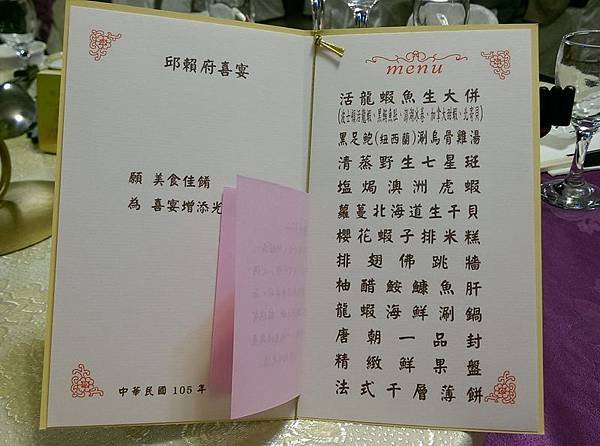 邱賴府喜宴
願 美食佳餚
為 喜宴增添光
中華民國 105 年
menu
活龍蝦魚生大併
黑足鮑(紐西蘭)涮烏骨雞湯
清蒸野生七星斑
塩焗澳洲虎蝦
蘿蔓北海道生干貝
櫻花蝦子排米糕
排翅佛跳牆
柚醋鮟鱇魚肝
龍蝦海鮮涮鍋
唐朝一品封
精緻鮮果盤
法式千層薄餅